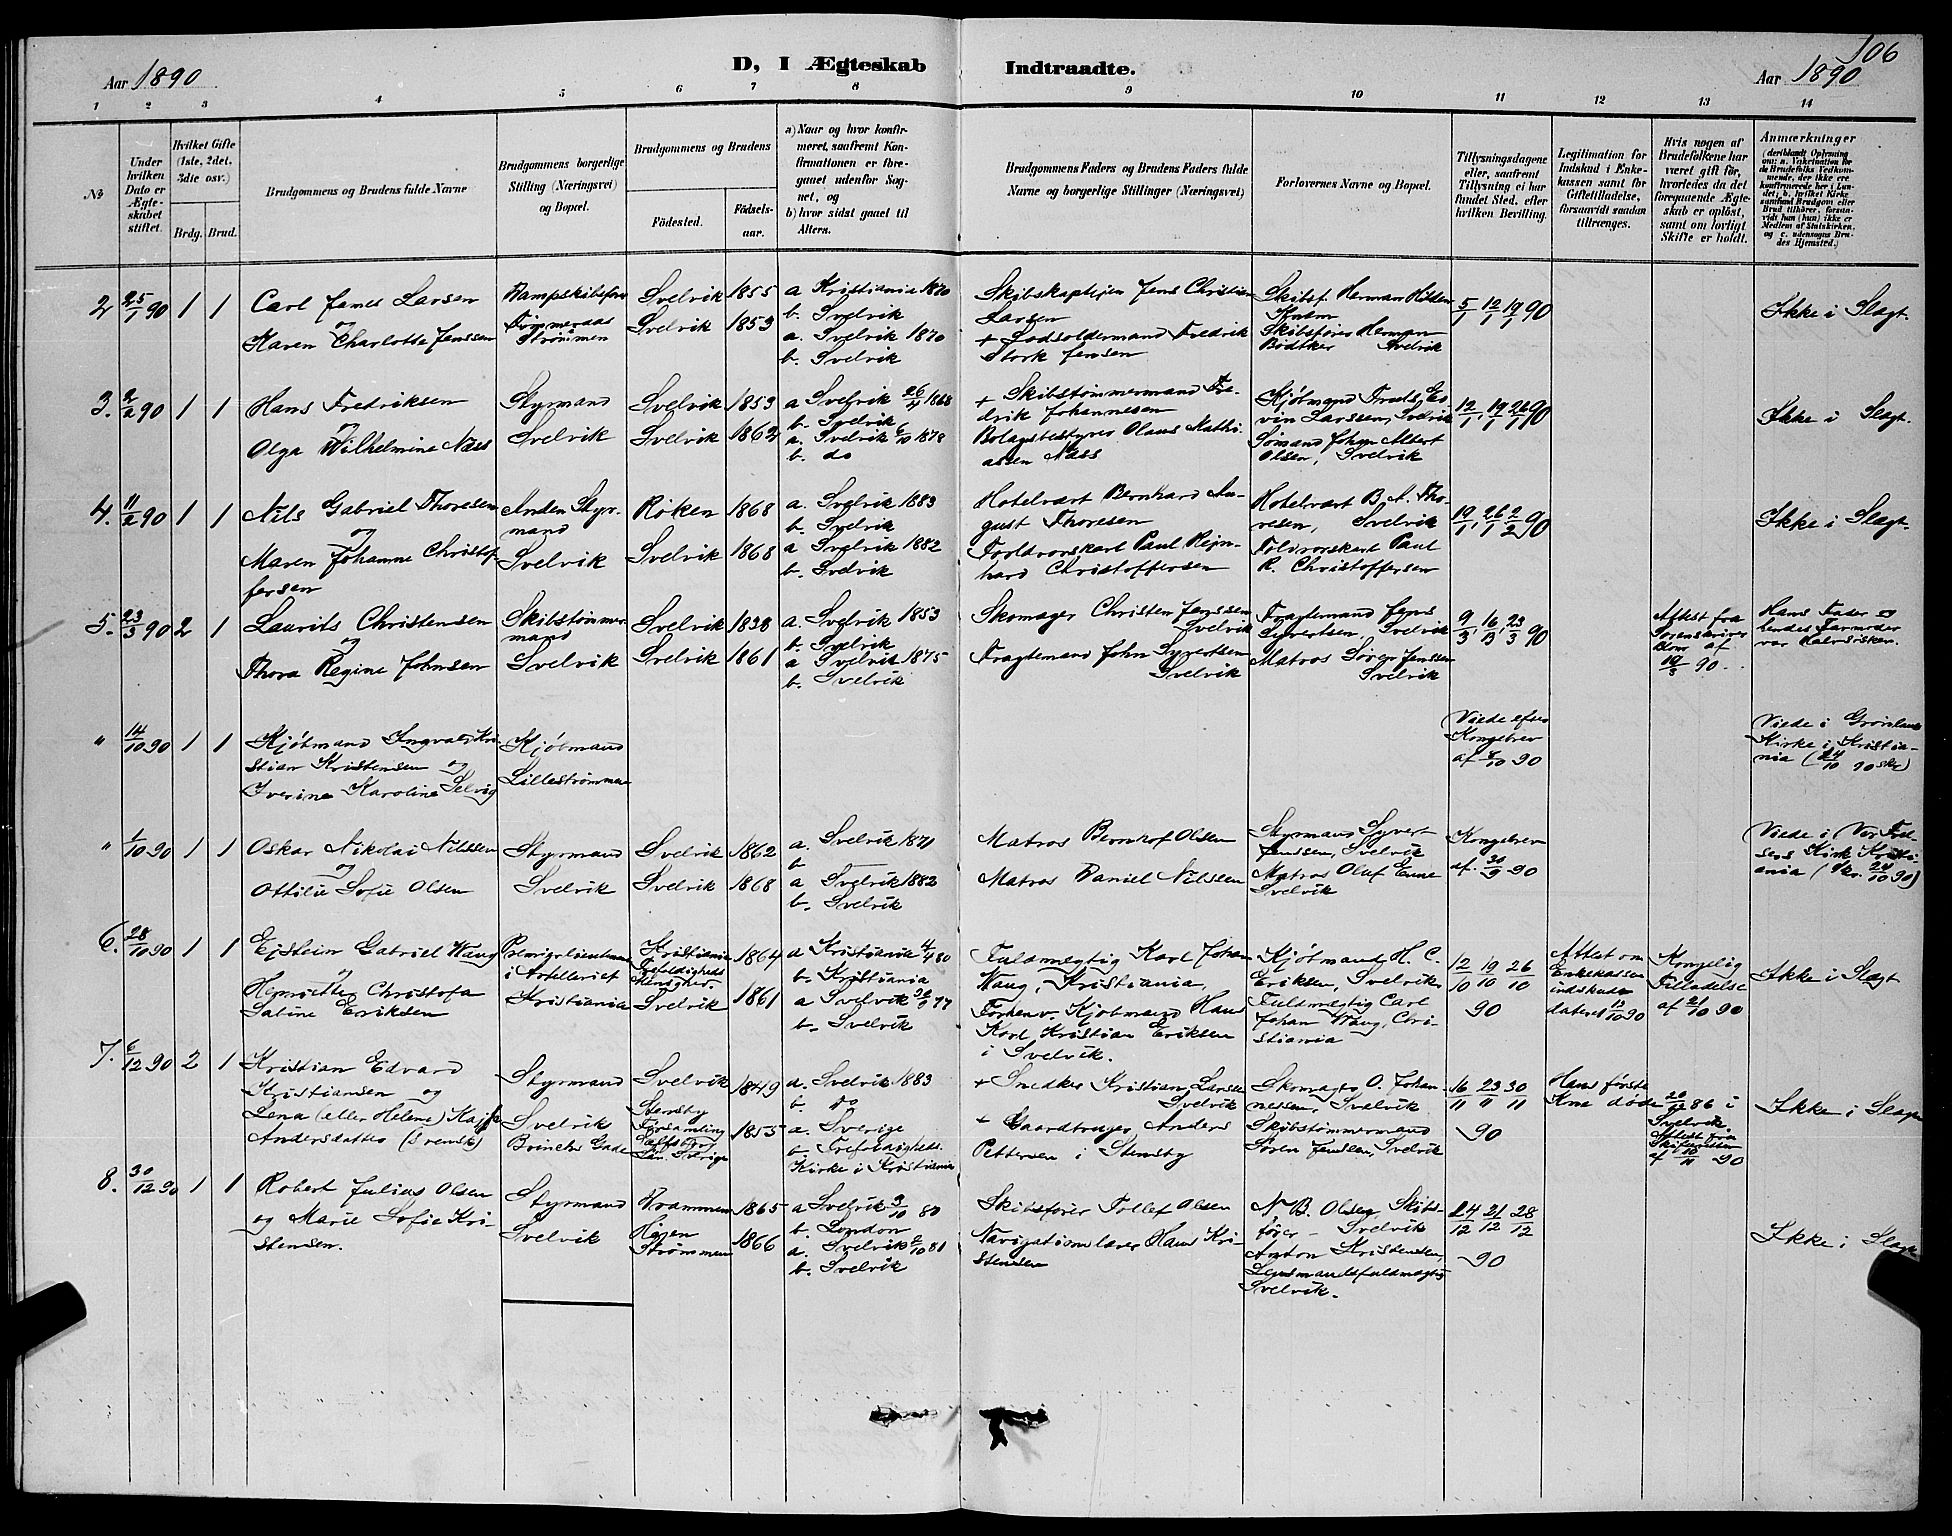 106
Aar 1890
D, I Ægteskab Indtraadte.
Aar 1890
1 2 3 4 5 6 7 8 9 10 11 12 13 14
№
Under hvilken Dato er Ægteskabet stiftet.
Hvilket Gifte (1ste, 2det, 3die osv.)
Brdg. Brud.
Brudgommens og Brudens fulde Navne
Brudgommens borgerlige Stilling (Næringsvei) og Bopæl.
Brudgommens og Brudens
Fødested.
Fødselsaar.
a) Naar og hvor konfirmeret, saafremt Konfirmationen er foregaaet udenfor Sognet, og
b) hvor sidst gaaet til Alters.
Brudgommens Faders og Brudens Faders fulde Navne og borgerlige Stillinger (Næringsvei)
Forlovernes Navne og Bopæl.
Tillysningsdagene eller, saafremt Tillysning ei har fundet Sted, efter hvilken Bevilling.
Legitimation for Indskud i Enkekassen samt for Giftetilladelse, forsaavidt saadan tiltrænges.
Hvis nogen af Brudefolkene har været gift før, hvorledes da det foregaaende Ægteskab er opløst, samt om lovligt Skifte er holdt.
Anmærkninger
2 25/1 90 1 1
Carl James Larsen
og
Karen Charlotte Jenssen
Strømmen
Svelvik 1855
Svelvik 1853
a Kristiania 1870
b. Svelvik
a. Svelvik 1870
b. Svelvik
Skibskaptejn Jens Christian
Larsen
+ Lodsoldermand Fredrik
Stork Jensen
Skibsf. Herman
Skibsfører Herman
Bödtker Svelvik
5/1 12/1 19/1 90
Ikke i Slægt.
3. 2/2 90 1 1
Hans Fredriksen
og
Olga Wilhelmine Næss
Styrmand
Svelvik
Svelvik 1853
Svelvik 1862
a Svelvik 26/4 1868
b. Svelvik
a. Svelvik 6/10 1878
b. do
+ Skibstømmermand Fredrik
Johannesen
Bolagsbestyrer Olaus Mathiasen
Næss
Kjøbmand Truls Edvin
Larssen, Svelvik
Sømand Johan Albert
Olsen, Svelvik
12/1, 19/1 26/1 90
Ikke i Slægt.
4. 11/2 90 1 1
Nils Gabriel Thoresen
og
Maren Johanne Christoffersen
Anden Styrmand
Svelvik
Røken 1868
Svelvik 1868
a. Svelvik 1883
b. Svelvik
a Svelvik 1882
b. Svelvik
Hotelvært Bernhard August
Thoresen
Toldvorskart Paul Rejnhard
Christoffersen
Hotelvært B. A. Thoresen,
Svelvik
Toldvorskart Paul
R. Christoffersen
19/1 26/1 2/2 90
Ikke i Slægt.
5. 23/3 90 2 1
Laurits Christensen
og
Thora Regine Johnsen
Skibstømmermand
Svelvik
Svelvik 1828
Svelvik 1861
a. Svelvik 1853
b. Svelvik
a Svelvik 1875
b. Svelvik
Skomager Christen Jenssen
Svelvik
Fragtemand John Syvertsen
Svelvik
Fragtemand Jens
Syvertsen, Svelvik
Matros Søren Jenssen
Svelvik
9/3, 16/3, 23/3 90
Attest fra
Sorenskriver
af
10/3 90.
Hans Fader og
hendes Farmoder
var Halvsøsken.
" 14/10 90 1 1
Kjøbmand Ingvald Kristian
Kristensen og
Iverine Karoline Selvig
Kjøbmand
Lillestrømmen
Viede efter
Kongebrev
af 10 90
Viede i Grønlands
Kirke i Kristiania
" 1/10 90 1 1
Oskar Nikolai Nilssen
og
Ottilie Sofie Olsen
Styrmand
Svelvik
Svelvik 1862
Svelvik 1868
a. Svelvik 1871
b
a Svelvik 1882
b. Svelvik
Matros Bernhof Olsen
Matros Daniel Nilssen
Styrmand Syvert
Jenssen, Svelvik
Matros Oluf Enne
Svelvik
Kongebrev
af. 30/9 90
Viede i Vor Frelsers
Kirk Kristiania
6. 28/10 90 1 1
Ejsteim Gabriel Waug
og
Henriette Christofa
Sabine Eriksen
Premierløieutnant
i Artelleriet
Kristiania
Kristiania
Trefoldigheds
Menighed 1864
Svelvik 1861
a Kristiania 4/4 80
b. Kristiania
a Svelvik 77
b. Svelvik
Fuldmægtig Karl Johan
Waug, Kristiania,
Forhenv. Kjøbmand Hans
Karl Kristian Eriksen
i Svelvik.
Kjøbmand H. C.
Eriksen, Svelvik,
Fuldmægtig Carl
Johan Waug, Christiania
12/10 19/10 26/10
90
Attest om
Enkekassen
indskud
dateret 90
Kongelig
Tilladelse
af 21/10 90
Ikke i Slægt
7. 6/12 90 2 1
Kristian Edvard
Kristiansen og
Lena (eller Helene) Kajsa
Andersdatter (Svensk)
Styrmand
Svelvik
Gade
Svelvik 1849
Stemsby
1855
a. Svelvik 1883
b. do
a. Sverige
b. Trefoldigheds
Kirke i Kristiania
+ Snedker Kristian Larsen
Svelvik
+ Gaardbruger Anders
Pettersen i Stemsby
Skomager O. Johannessen,
Svelvik
Skibstømmermand
Søren Jenssen, Svelvik
16/11 23/11 30/11
90
Hans første
Kone døde 86 i
Svelvik.
Attest fra
Skifteretten
af 90
Ikke i Slægt
8. 30/12 90 1 1
Robert Julius Olsen
og Marie Sofie Kristensen.
Styrmand
Svelvik
Drammen 1865
Strømmen 1866
a Svelvik 3/10 80
b. London
a. Svelvik 2/10 81
b. Svelvik
Skibsfører Tollef Olsen
Navigationslærer Hans Kristensen
N. B. Olsen, Skibsfører
- Svelvik
Anton Kristensen,
Lensmandsfuldmægtig
Svelvik.
14/12 21/12 28/12
90
Ikke i Slægt